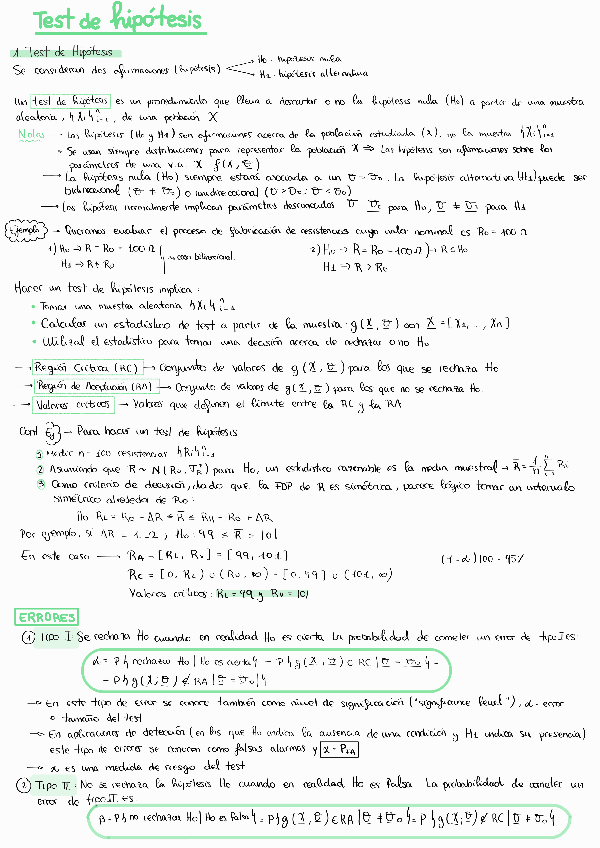 Test de hipótesis
1. Test de Hipótesis
Se consideran dos afirmaciones (hipótesis) → H0 · hipótesis nula
→ H1 · hipótesis alternativa
Un test de hipótesis es un procedimiento que lleva a descartar o no la hipótesis nula (H0) a partir de una muestra
aleatoria, {Xi}ⁿi=1, de una población X
Notas · Las hipótesis (H0 y H1) son afirmaciones acerca de la población estudiada (X), no la muestra {Xi}ⁿi=1
· Se usan siempre distribuciones para representar la población X ⇒ Las hipótesis son afirmaciones sobre los
parámetros de una v.a. X f(X, θ)
→ La hipótesis nula (H0) siempre estará asociada a un θ = θ0. La hipótesis alternativa (H1) puede ser
bidireccional (θ ≠ θ0) o unidireccional (θ > θ0 ; θ < θ0)
→ Las hipótesis normalmente implican parámetros desconocidos θ = θ0 para H0, θ ≠ θ0 para H1
Ejemplo → Queremos evaluar el proceso de fabricación de resistencias cuyo valor nominal es R0 = 100 Ω
1) H0 → R = R0 = 100 Ω 2) H0 → R = R0 = 100 Ω → R ≤ R0
H1 → R ≠ R0 → caso bidireccional H1 → R > R0
Hacer un test de hipótesis implica :
• Tomar una muestra aleatoria {Xi}ⁿi=1
• Calcular un estadístico de test a partir de la muestra : g(X, θ) con X = [X1, .., Xn]
• Utilizar el estadístico para tomar una decisión acerca de rechazar o no H0
→ Región Crítica (RC) → Conjunto de valores de g(X, θ) para los que se rechaza H0
→ Región de Aceptación (RA) → Conjunto de valores de g(X, θ) para los que no se rechaza H0.
→ Valores críticos → Valores que definen el límite entre la RC y la RA
Cont Ej → Para hacer un test de hipótesis
1 Medir n = 100 resistencias {Ri}ⁿi=1
2 Asumiendo que R ~ N(R0, σR²) para H0, un estadístico razonable es la media muestral → R̄ = 1/n Σ Ri
3 Como criterio de decisión, dado que la FDP de R es simétrica, parece lógico tomar un intervalo
simétrico alrededor de R0 :
H0 RL = R0 - ΔR ≤ R̄ ≤ RH = R0 + ΔR
Por ejemplo, si ΔR = 1 Ω ; H0 : 99 ≤ R̄ ≤ 101
En este caso → RA = [RL, RU] = [99, 101] (1-α)100 = 95%
RC = [0, RL) ∪ (RU, ∞) = [0, 99] ∪ (101, ∞)
Valores críticos : RL = 99 y RU = 101
ERRORES
1 Tipo I : Se rechaza H0 cuando en realidad H0 es cierta. La probabilidad de cometer un error de tipo I es:
α = P{rechazar H0 | H0 es cierta} = P{g(X, θ) ∈ RC | θ = θ0} =
= P{g(X, θ) ∉ RA | θ = θ0}
→ En este tipo de error se conoce también como nivel de significación ("significance level"), α - error
o tamaño del test
→ En aplicaciones de detección (en las que H0 indica la ausencia de una condición y H1 indica su presencia)
este tipo de errores se conocen como falsas alarmas y α = PFA
→ α es una medida de riesgo del test
2 Tipo II · No se rechaza la hipótesis H0 cuando en realidad H0 es falsa. La probabilidad de cometer un
error de tipo II es
β = P{no rechazar H0 | H0 es falsa} = P{g(X, θ) ∈ RA | θ ≠ θ0} = P{g(X, θ) ∉ RC | θ ≠ θ0}